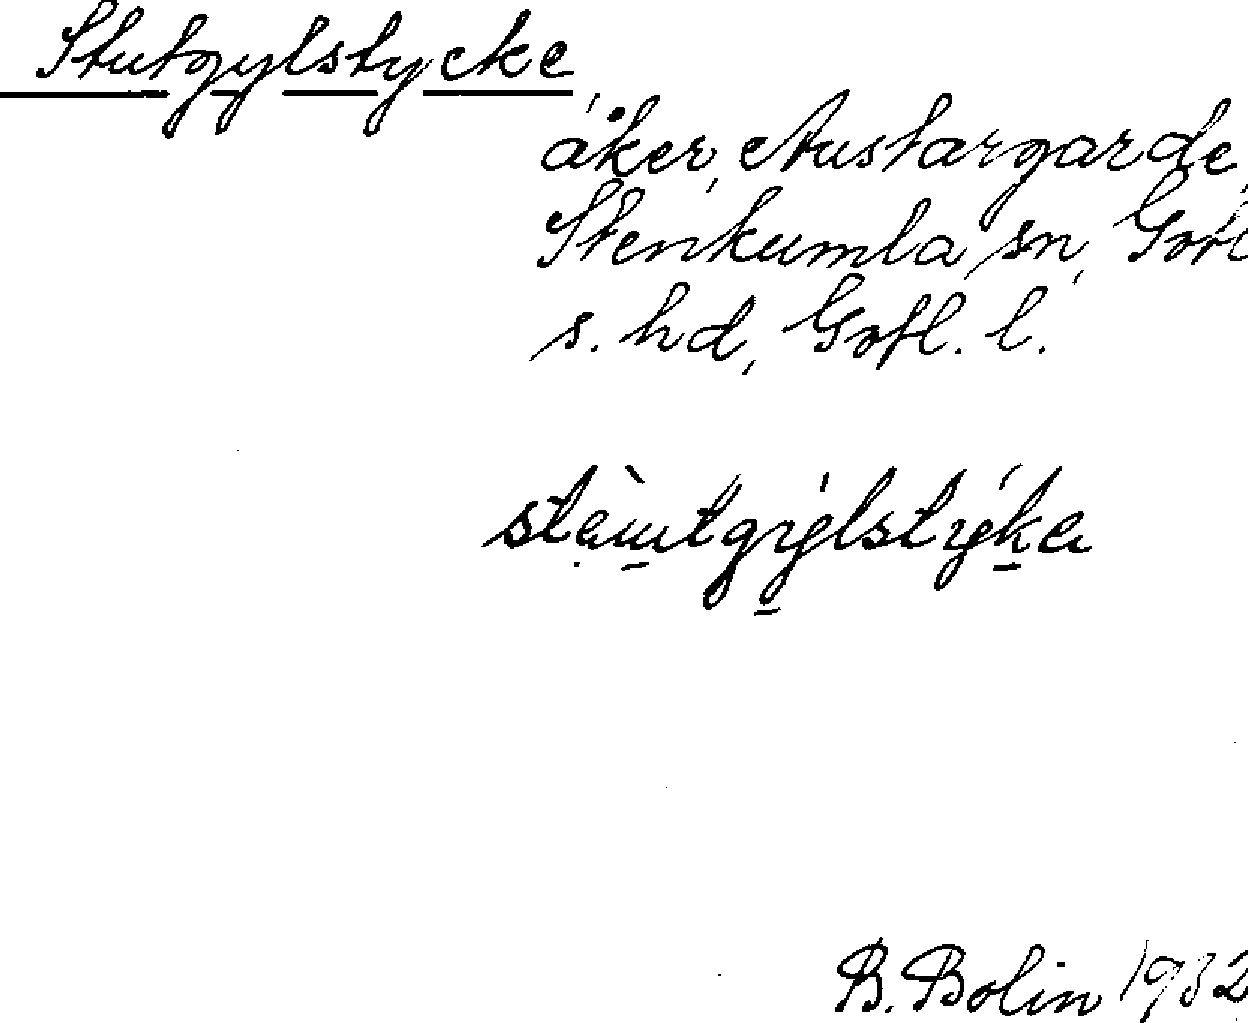 Stutgylstycke,
åker, Austargarde,
Stenkumla sn, Gotl
s. hd, Gotl. l.
B. Bolin 1932